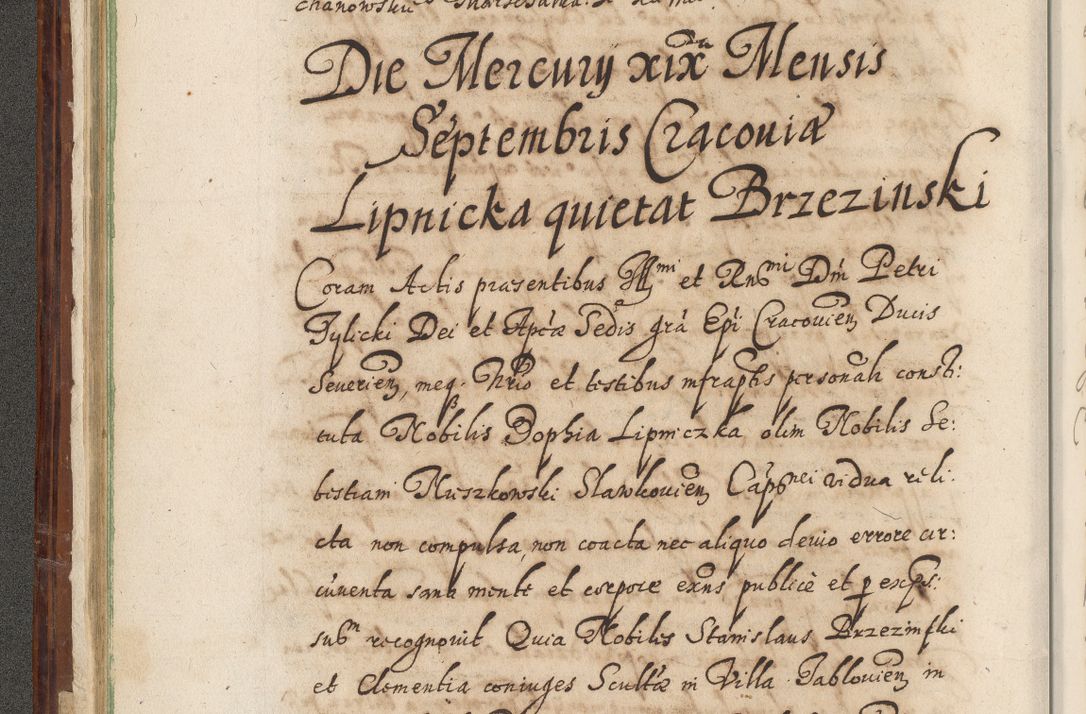 Die Mercurÿ xix Mensis
Septembris Cracoviæ
Lipnicka quietat Brzezinski
Coram Actis præsentibus Illmi et Rndmi Dni Petri
Tylicki Dei et Aplcæ Sedis grã Epi Cracovien Ducis
Severien, meq. Nrio et testibus infraptis personalr consti:
tuta Nobilis Zophia Lipniczka olim Nobilis Se:
bestiani Myszkowski Slawkovien Capnei vidua reli:
cta non compulsa, non coacta nec aliquo devio errore cir:
cuventa sana mente et corpore exns publicè et p exps:
sum recognovit Quia Nobiles Stanislaus Brzezinski
et Clementia coniuges Scultæ in Villa Jablovien in